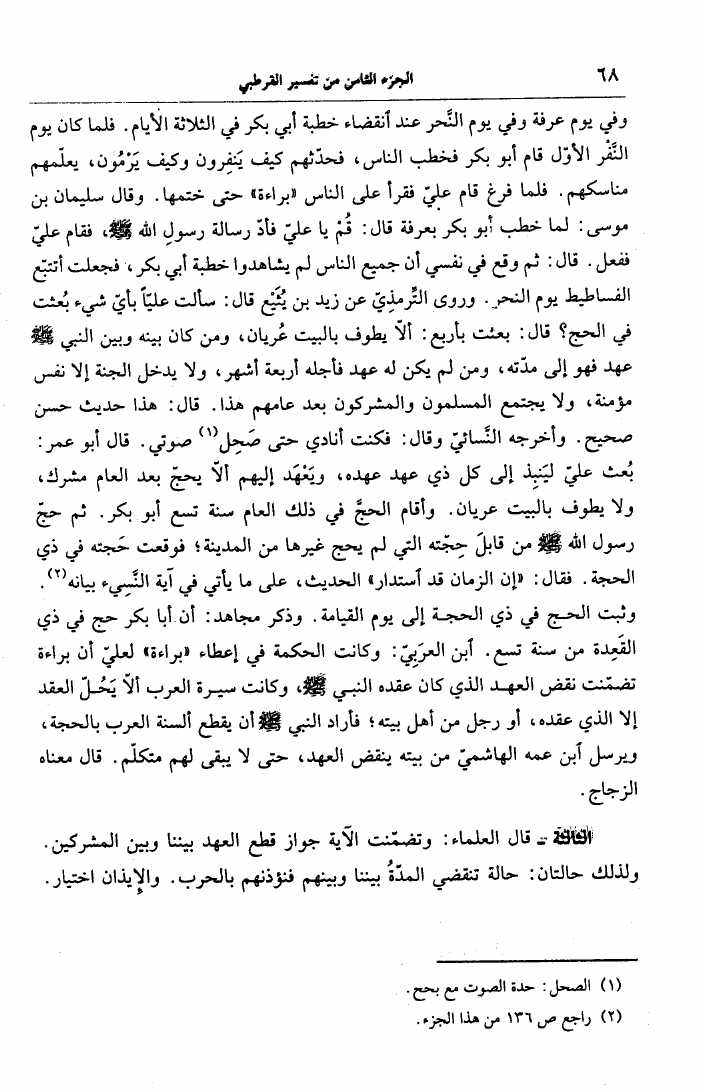 ٦٨
الجزء الثامن من تفسير القرطبي
وفي يوم عرفة وفي يوم النَّحر عند ٱنقضاء خطبة أبي بكر في الثلاثة الأيام. فلما كان يوم
النَّفْر الأوّل قام أبو بكر فخطب الناس، فحدّثهم كيف يَنفِرون وكيف يَرْمُون، يعلّمهم
مناسكهم. فلما فرغ قام عليّ فقرأ على الناس «براءة» حتى ختمها. وقال سليمان بن
موسى: لما خطب أبو بكر بعرفة قال: قُمْ يا عليّ فأدّ رسالة رسول الله ﷺ، فقام عليّ
ففعل. قال: ثم وقع في نفسي أن جميع الناس لم يشاهدوا خطبة أبي بكر، فجعلت أتتبّع
الفساطيط يوم النحر. وروى التِّرمذِيّ عن زيد بن يُثَيْع قال: سألت عليّاً بأيّ شيء بُعثت
في الحج؟ قال: بعثت بأربع: ألاّ يطوف بالبيت عُريان، ومن كان بينه وبين النبي ﷺ
عهد فهو إلى مدّته، ومن لم يكن له عهد فأجله أربعة أشهر، ولا يدخل الجنة إلا نفس
مؤمنة، ولا يجتمع المسلمون والمشركون بعد عامهم هذا. قال: هذا حديث حسن
صحيح. وأخرجه النَّسائيّ وقال: فكنت أنادي حتى صَحِل(١) صوتي. قال أبو عمر:
بُعث عليّ ليَنبِذ إلى كل ذي عهد عهده، ويَعْهَد إليهم ألاّ يحجّ بعد العام مشرك،
ولا يطوف بالبيت عريان. وأقام الحجَّ في ذلك العام سنة تسع أبو بكر. ثم حجّ
رسول الله ﷺ من قابلَ حِجّته التي لم يحج غيرها من المدينة؛ فوقعت حَجته في ذي
الحجة. فقال: «إن الزمان قد ٱستدار» الحديث، على ما يأتي في آية النَّسِيء بيانه(٢).
وثبت الحج في ذي الحجة إلى يوم القيامة. وذكر مجاهد: أن أبا بكر حج في ذي
القَعِدة من سنة تسع. ٱبن العربِيّ: وكانت الحكمة في إعطاء «براءة» لعليّ أن براءة
تضمّنت نقض العهد الذي كان عقده النبي ﷺ، وكانت سيرة العرب ألاّ يَحُلّ العقد
إلا الذي عقده، أو رجل من أهل بيته؛ فأراد النبي ﷺ أن يقطع ألسنة العرب بالحجة،
ويرسل ٱبن عمه الهاشميّ من بيته ينقض العهد، حتى لا يبقى لهم متكلّم. قال معناه
الزجاج.
الثالثة ــ قال العلماء: وتضمّنت الآية جواز قطع العهد بيننا وبين المشركين.
ولذلك حالتان: حالة تنقضي المدّةُ بيننا وبينهم فنؤذنهم بالحرب. والإيذان اختيار.
(١) الصحل: حدة الصوت مع بحح.
(٢) راجع ص ١٣٦ من هذا الجزء.